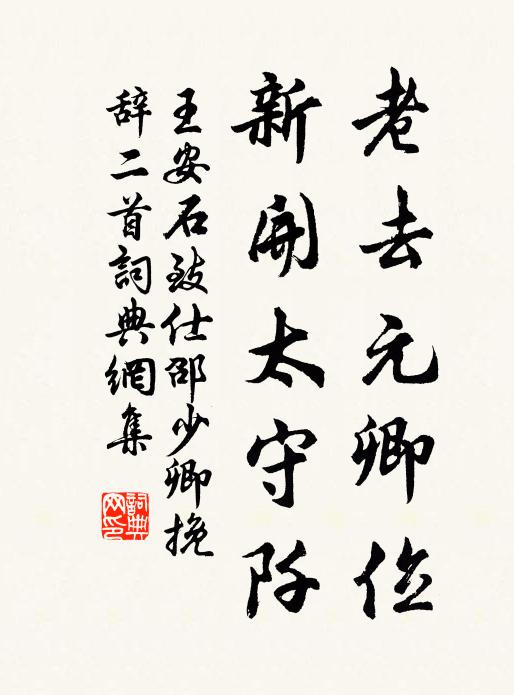 老去元卿位
新開太守阡
王安石致仕邵少卿挽
辞二首詞典網集
詞典
网印